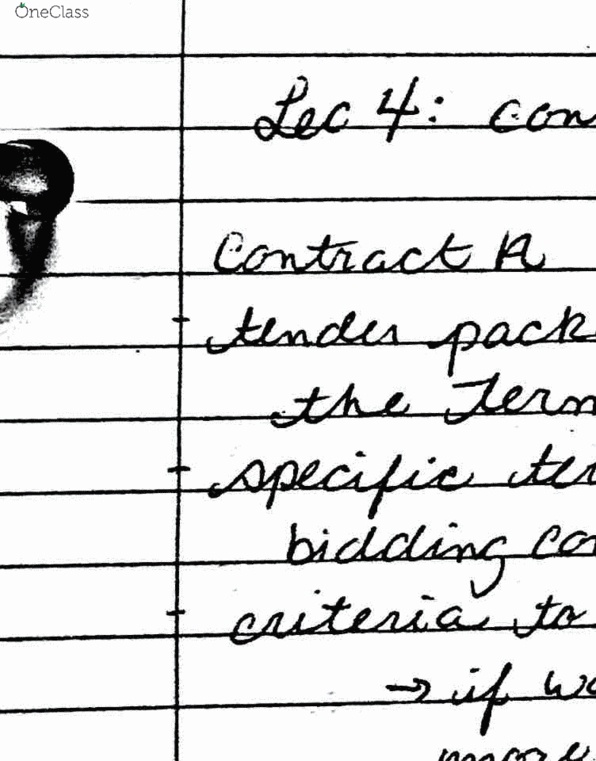 OneClass
Lec 4: con
Contract A
- tender pack
the Term
- specific ter
bidding co
- criteria to
→ if wo
more